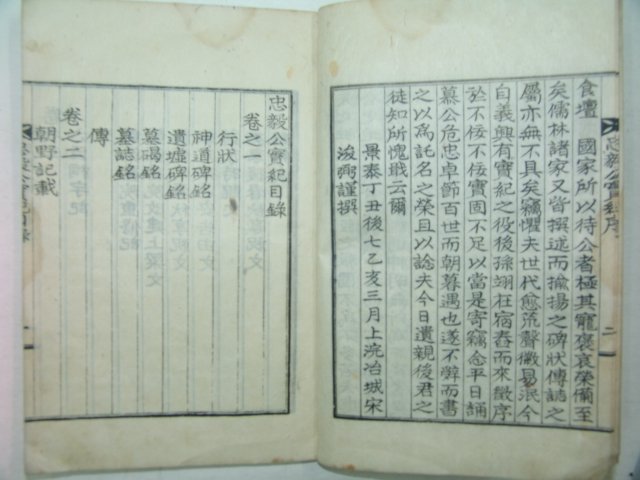 食壇 國家所以待公者極其寵褒哀榮備至
矣儒林諸家又皆撰述而揄揚之碑狀傳誌之
屬亦無不具矣竊懼夫世代愈流聲徽易泯今
自義興有實紀之役後孫翊在宿舂而來徵序
於不佞不佞實固不足以當是寄竊念平日誦
慕公危忠卓節百世而朝暮遇也遂不辭而書
之以爲託名之榮且以諗夫今日遺親後君之
徒知所愧戢云爾
景泰丁丑後七乙亥三月上浣冶城宋
浚弼謹撰
忠毅公實紀序
二
忠毅公實紀目錄
卷之一
行狀
神道碑銘
遺墟碑銘
墓碣銘
墓誌銘
傳
卷之二
朝野記載